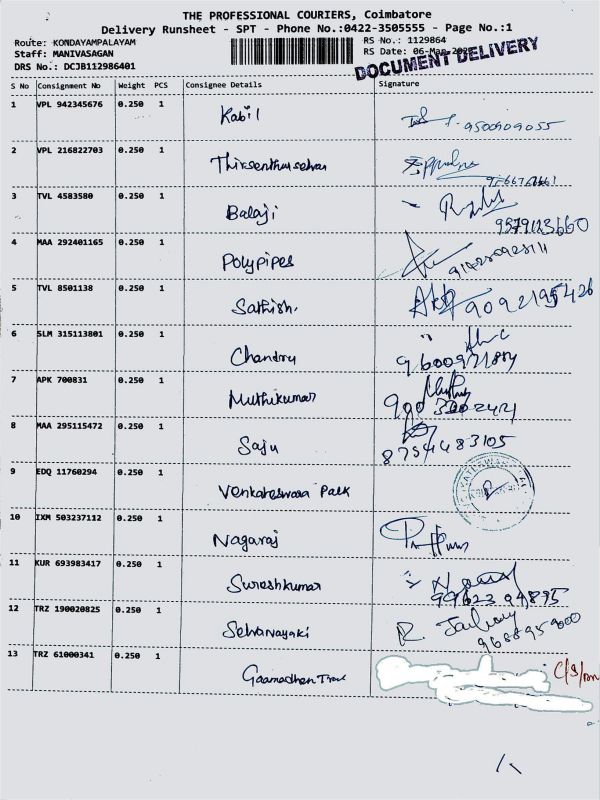 THE PROFESSIONAL COURIERS, Coimbatore
Delivery Runsheet - SPT - Phone No.:0422-3505555 - Page No.:1
Route: KONDAYAMPALAYAM
Staff: MANIVASAGAN
DRS No.: DCJB112986401
RS No.: 1129864
RS Date: 06-Mar-
DOCUMENT DELIVERY
S No Consignment No Weight PCS Consignee Details Signature
1 VPL 942345676 0.250 1 Kabil 9500909055
2 VPL 216822703 0.250 1
3 TVL 4583580 0.250 1 Balaji
4 MAA 292401165 0.250 1 Polypipes
5 TVL 8501138 0.250 1 Sathish. 9092195426
6 SLM 315113801 0.250 1 Chandru
7 APK 700831 0.250 1 Muthikumar
8 MAA 295115472 0.250 1 Saju 8754483105
9 EDQ 11760294 0.250 1 Venkateswara Park
10 IXM 503237112 0.250 1 Nagaraj
11 KUR 693983417 0.250 1 Sureshkumar
12 TRZ 190020825 0.250 1 Selvanayaki
13 TRZ 61000341 0.250 1